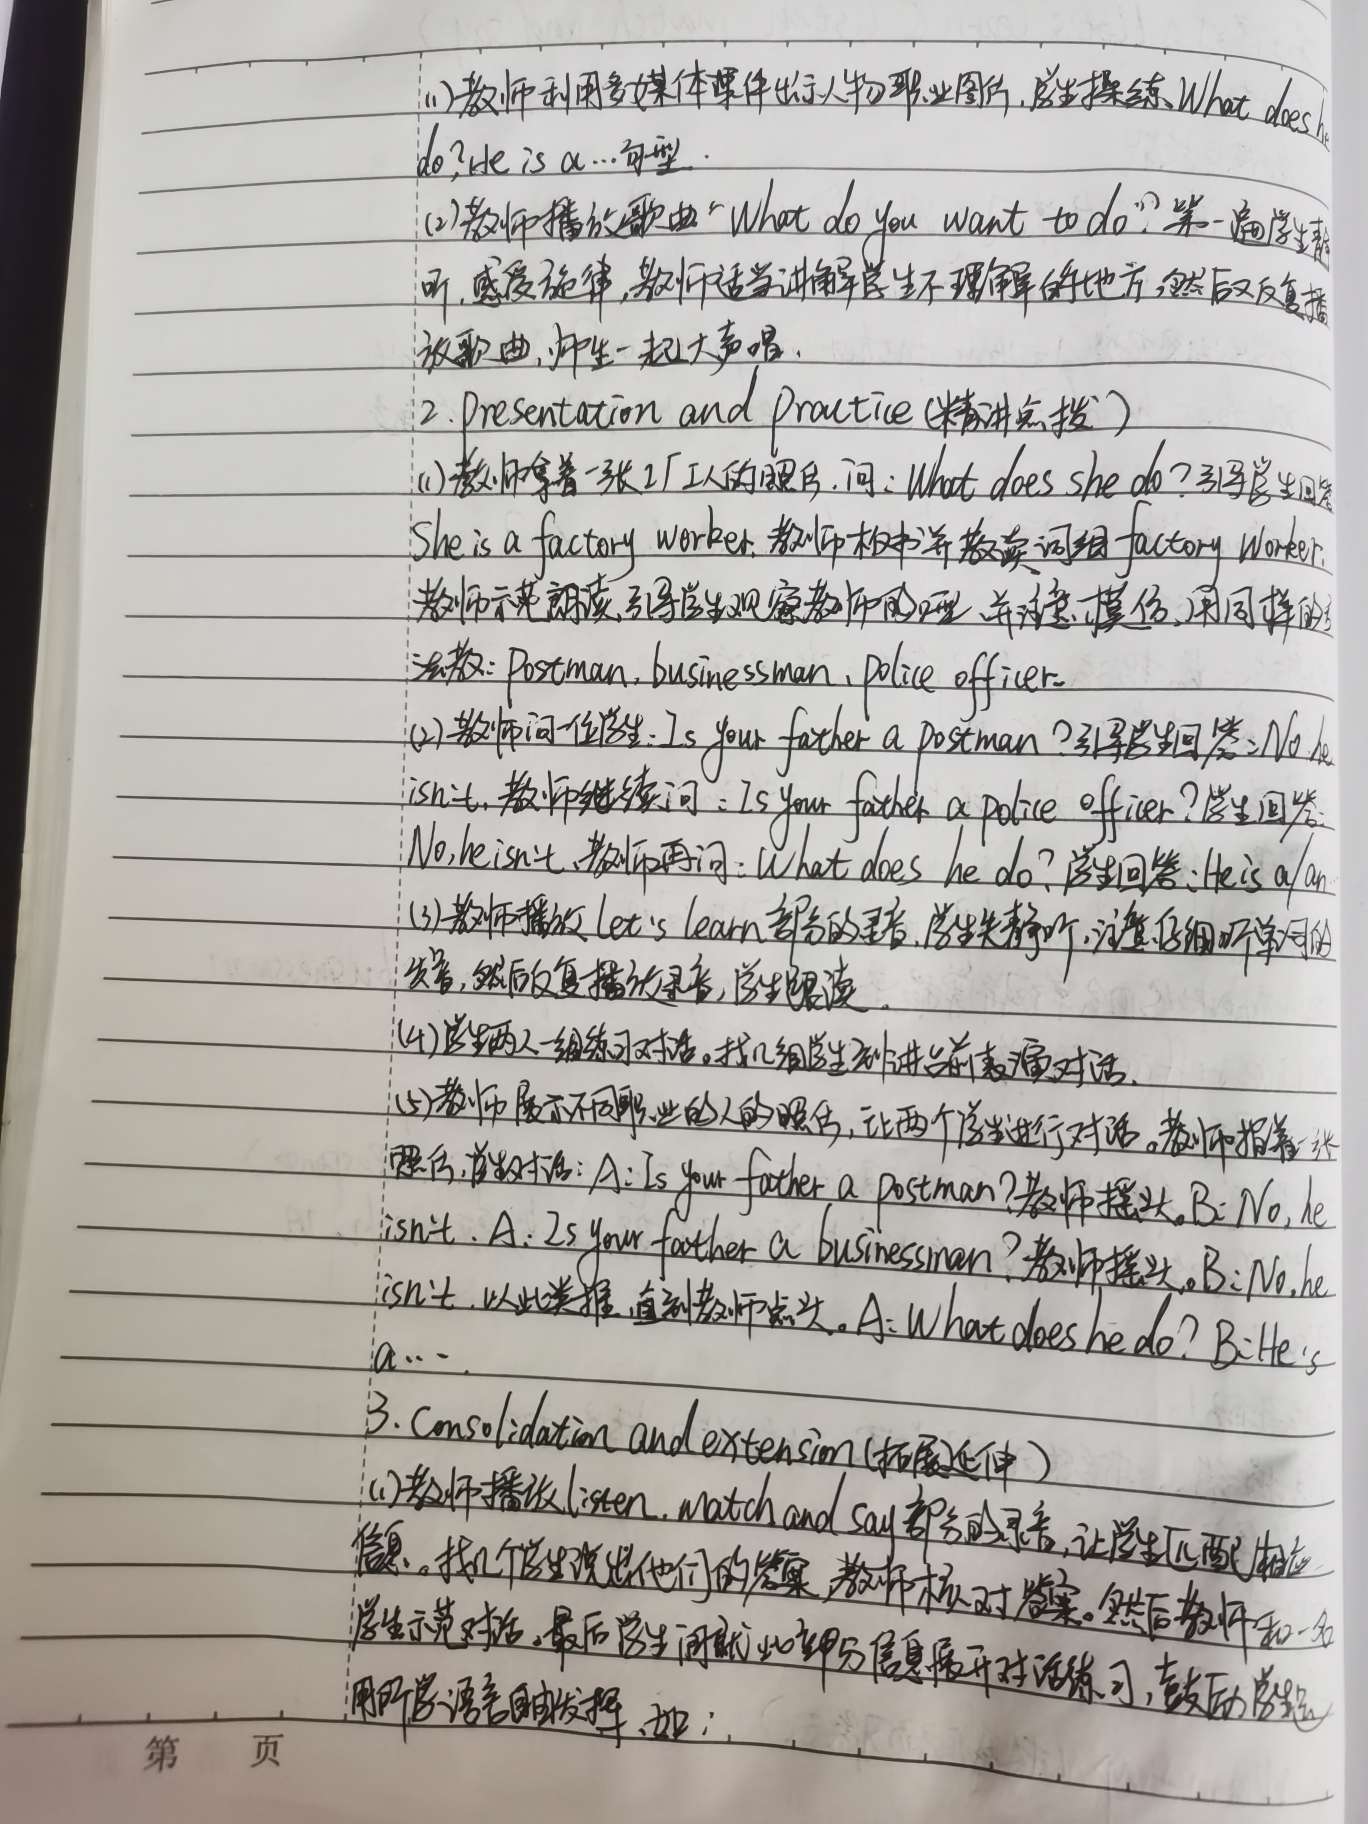 (1)教师利用多媒体课件出示人物职业图片,学生操练、What does he
do? He is a…句型.
(2)教师播放歌曲“What do you want to do”?第一遍学生静
听,感受旋律,教师适当讲解学生不理解的地方,然后又反复播
放歌曲,师生一起大声唱.
2.Presentation and Practice(精讲点拨)
(1)教师拿着一张工厂工人的照片.问:What does she do?引导学生回答
She is a factory worker.教师板书并教读词组factory worker.
教师示范朗读,引导学生观察教师的口型、并注意模仿,用同样的
法教:postman,business man、police officer.
(2)教师问一位学生:Is your father a postman?引导学生回答:No he
isn't,教师继续问:Is your father a police officer?学生回答:
No,he isn't、教师再问:What does he do?学生回答:He is a/an
(3)教师播放Let's learn部分的录音,学生先静听,注意仔细听单词的
发音,然后反复播放录音,学生跟读.
(4)学生两人一组练习对话。找几组学生到讲台前表演对话.
(5)教师展示不同职业的人的照片,让两个学生进行对话。教师指着一张
照片,学生对话:A:Is your father a postman?教师摇头。B:No,he
isn't.A:Is your father a businessman?教师摇头。B:No.he
isn't.以此类推,直到教师点头。A:What does he do? B:He's
a….
3.Consolidation and extension(拓展延伸)
(1)教师播放Listen,match and say部分的录音,让学生匹配相应
信息。找几个学生说出他们的答案,教师核对答案。然后教师和一名
学生示范对话。最后学生间就此部分信息展开对话练习,鼓励学生
用所学语言自由发挥、如:
第 页